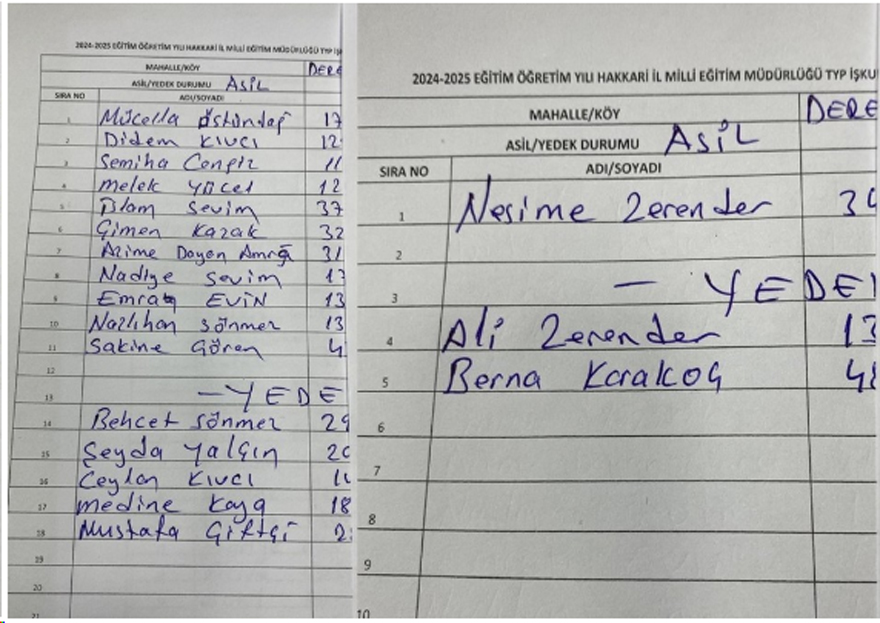 2024-2025 EĞİTİM ÖĞRETİM YILI HAKKARİ İL MİLLİ EĞİTİM MÜDÜRLÜĞÜ TYP İŞ
MAHALLE/KÖY DERE
ASİL/YEDEK DURUMU ASİL
SIRA NO ADI/SOYADI
1 Mücella üstündağ 17
2 Didem KIVCI 12
3 Semiha Cengiz 11
4 melek yücel 12
5 İslam Sevim 37
6 Çimen Kazak 32
7 Azime Doğan Amrağ 31
8 Nadiye Sevim 13
9 Emrah EVİN 13
10 Nazlıhan sönmez 13
11 Sakine Gören 4
12
13 — YEDE
14 Behcet sönmez 29
15 Şeyda yalçın 20
16 Ceylan KIVCI 1
17 medine Kaya 18
18 Mustafa Çiftçi 2
19
20
21
2024-2025 EĞİTİM ÖĞRETİM YILI HAKKARİ İL MİLLİ EĞİTİM MÜDÜRLÜĞÜ TYP İŞKU
MAHALLE/KÖY DERE
ASİL/YEDEK DURUMU ASİL
SIRA NO ADI/SOYADI
1 Nesime Zerender 34
2
3 — YEDE
4 Ali Zerender 13
5 Berna Karakoç 48
6
7
8
9
10